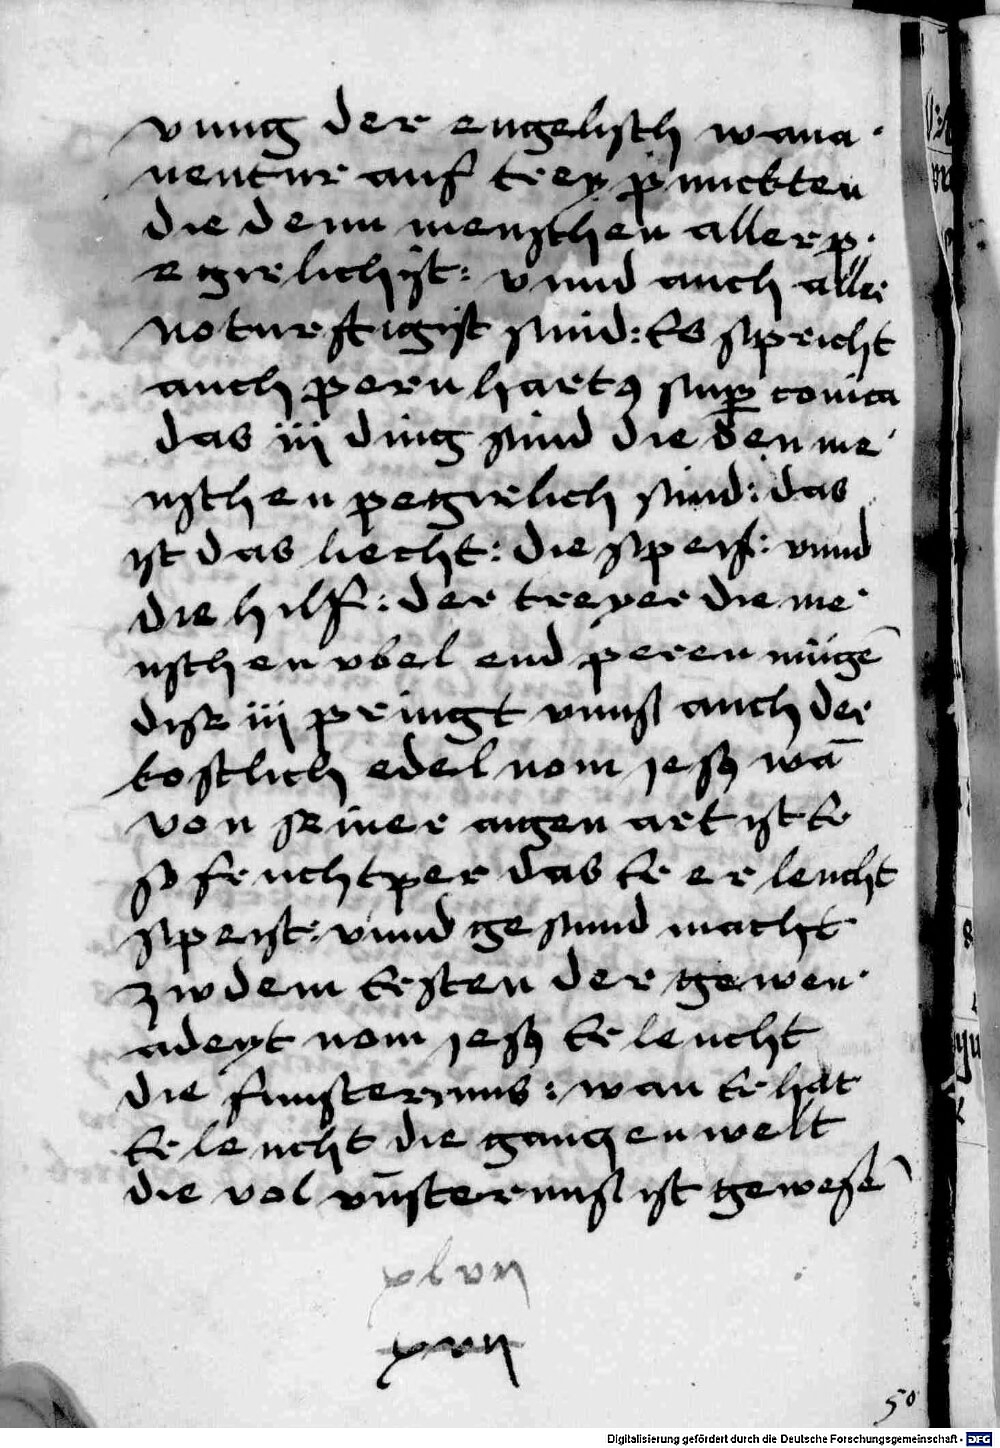 vnng der engelisch wana
uentur auf trey punckten
die denn menschen aller p
egirlichist: vnnd auch aller
noturftigist sinnd: Es spricht
auch pernhartꝯ sup conica
das iij ding sind die den me
nschen pegirlich sinnd: das
ist das liecht: die speis: vnnd
die hilf: der treyer die me
nschen vbel end peren mügē
dise iij pringt vnnß auch der
kostlich edel nom jesꝯ wā
von seiner aigen art ist Er
so fruchtper das Er erleucht
speist: vnnd gesunnd macht
zw dem Ersten der gewen
adeyt nom jesꝯ Erleucht
die finnsternnus: wan Er hat
Erleucht die ganczen welt
die vol vinsternnuß ist gewesē
xlvij
xvij
50
Digitalisierung gefördert durch die Deutsche Forschungsgemeinschaft - DFG